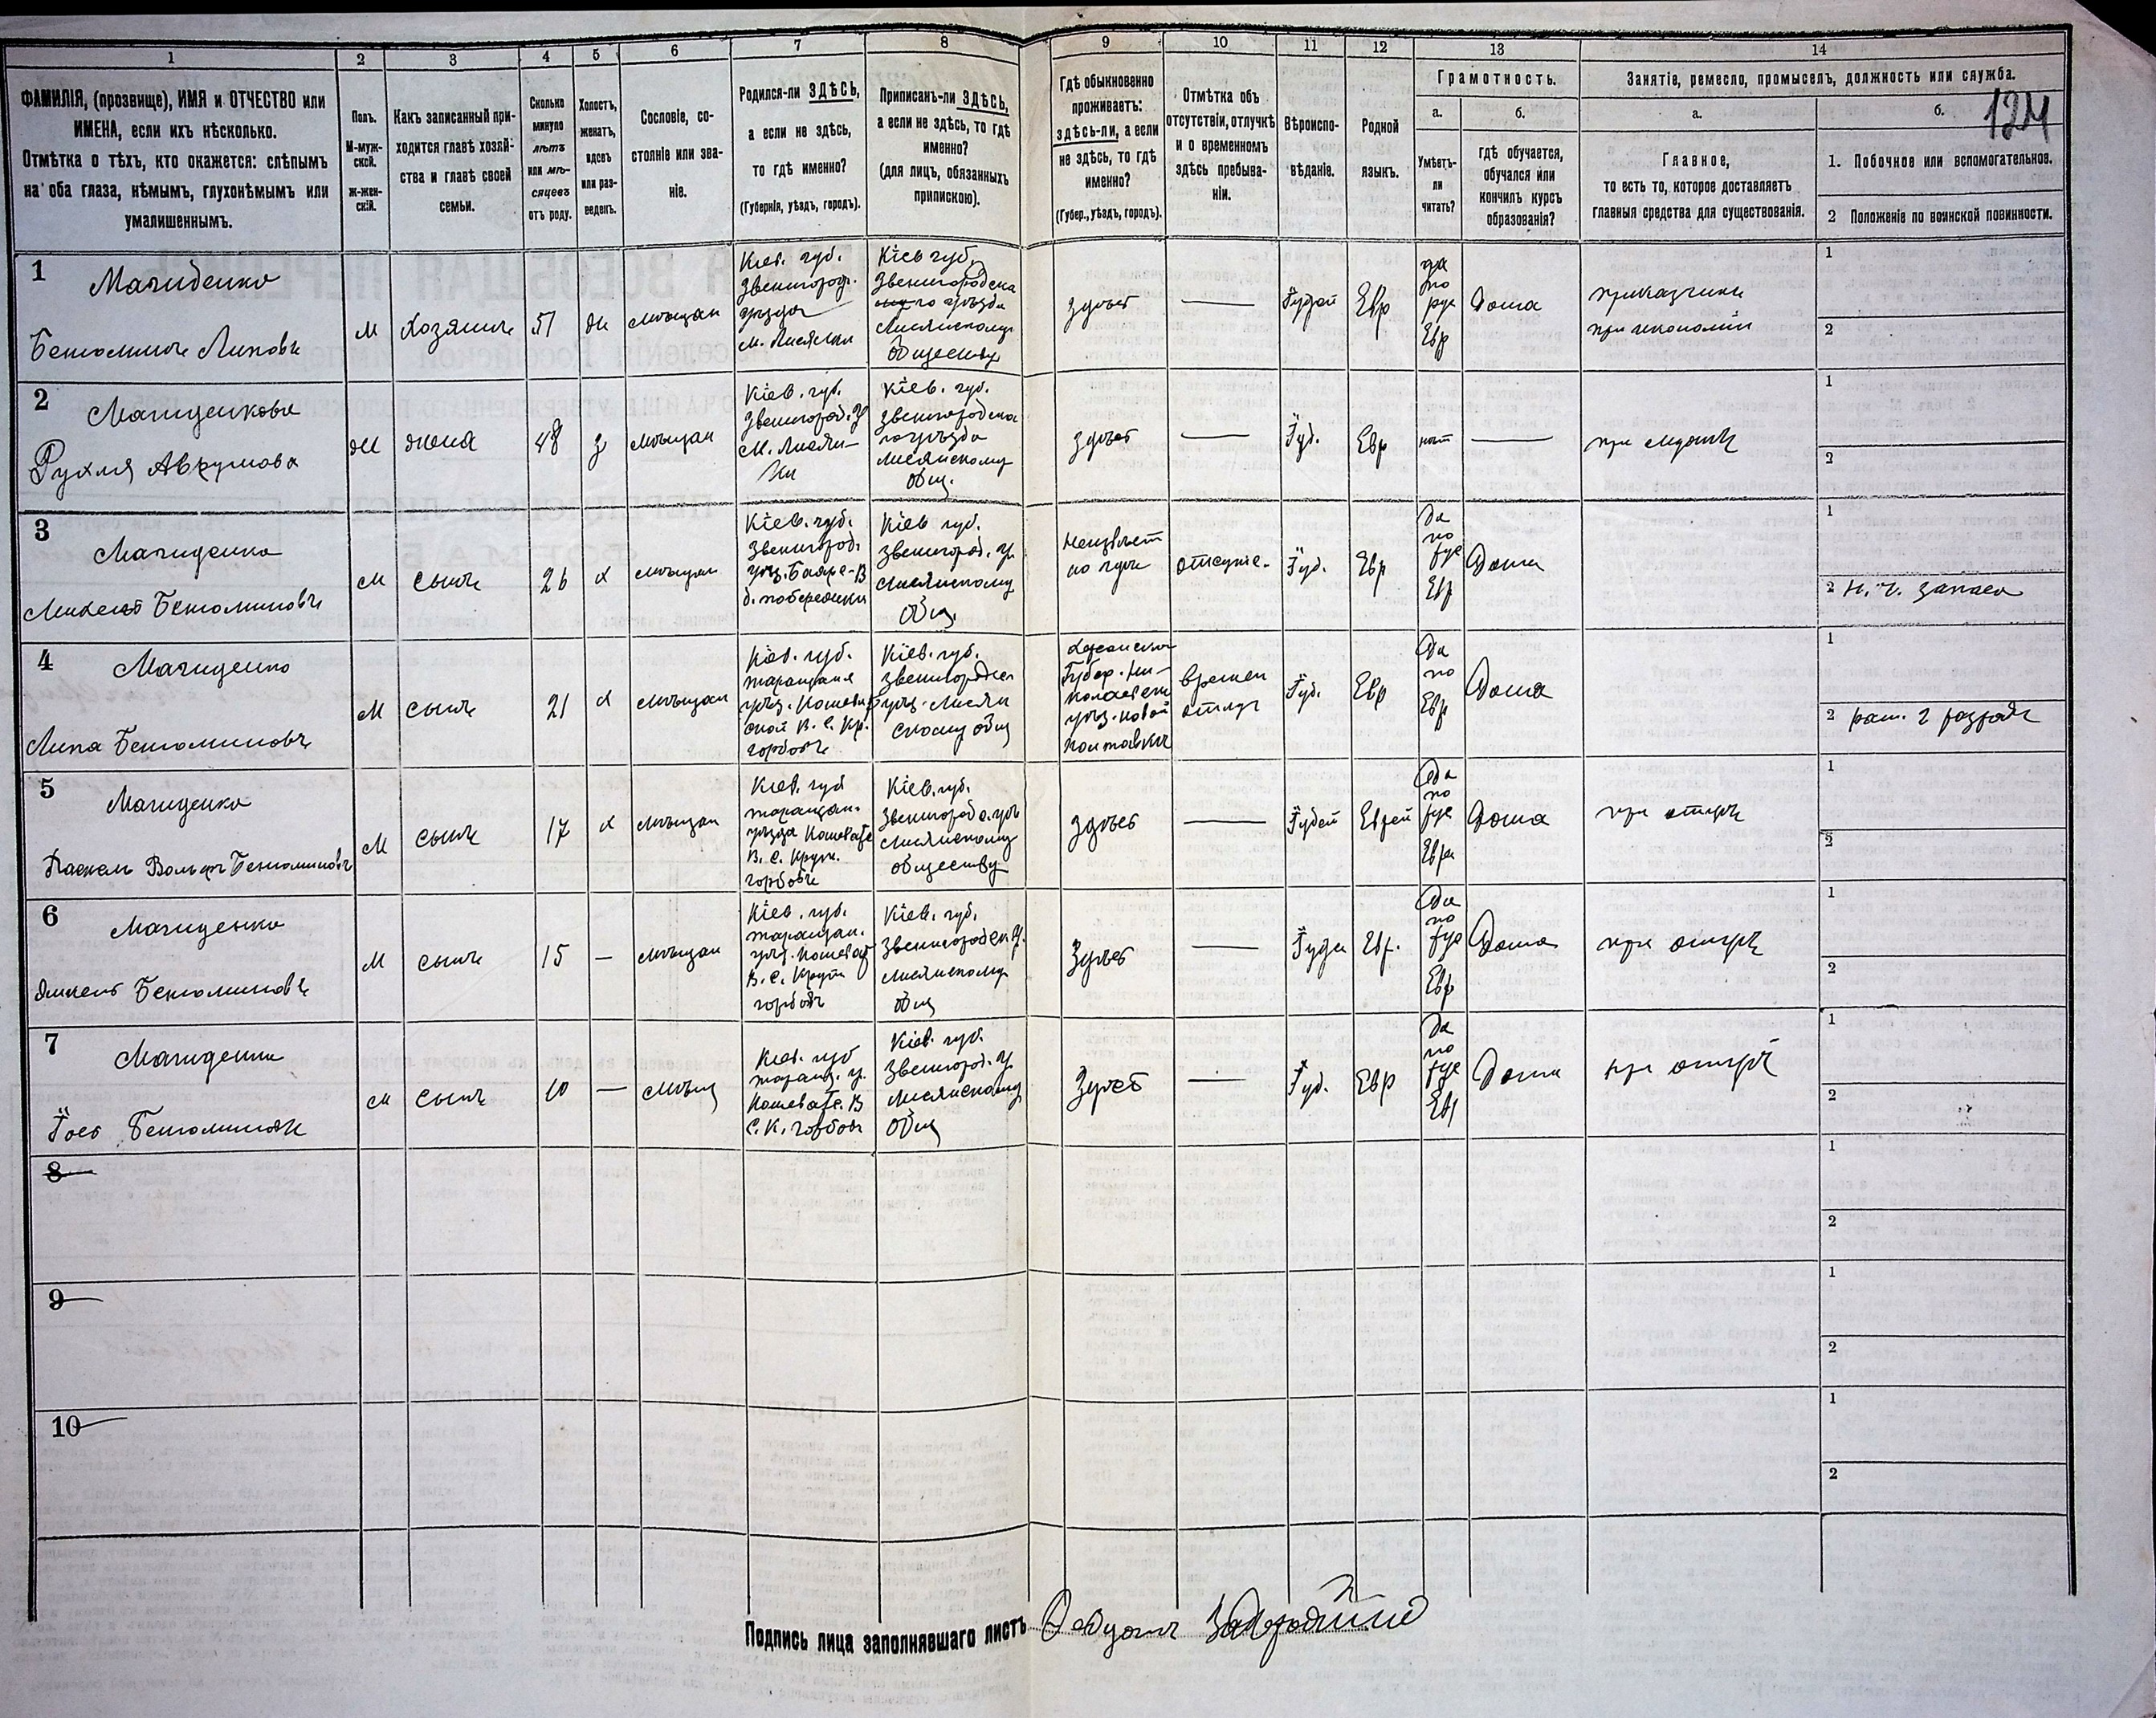 1
2
3
4
5
6
7
8
9
10
11
12
13
14
ФАМИЛІЯ, (прозвище), ИМЯ и ОТЧЕСТВО или
ИМЕНА, если ихъ нѣсколько.
Отмѣтка о тѣхъ, кто окажется: слѣпымъ
на оба глаза, нѣмымъ, глухонѣмымъ или
умалишеннымъ.
Полъ.
М-муж-
ской.
ж-жен-
скій.
Какъ записанный при-
ходится главѣ хозяй-
ства и главѣ своей
семьи.
Сколько
минуло
лѣтъ
или мѣ-
сяцевъ
отъ роду.
Холостъ,
женатъ,
вдовъ
или раз-
веденъ.
Сословіе, со-
стояніе или зва-
ніе.
Родился-ли ЗДѢСЬ,
а если не здѣсь,
то гдѣ именно?
(Губернія, уѣздъ, городъ).
Приписанъ-ли ЗДѢСЬ,
а если не здѣсь, то гдѣ
именно?
(для лицъ, обязанныхъ
припискою).
Гдѣ обыкновенно
проживаетъ:
здѣсь-ли, а если
не здѣсь, то гдѣ
именно?
(Губер., уѣздъ, городъ).
Отмѣтка объ
отсутствіи, отлучкѣ
и о временномъ
здѣсь пребыва-
ніи.
Вѣроиспо-
вѣданіе.
Родной
языкъ.
Грамотность.
а.
Умѣетъ-
ли
читать?
б.
гдѣ обучается,
обучался или
кончилъ курсъ
образованія?
Занятіе, ремесло, промыселъ, должность или служба.
а.
Главное,
то есть то, которое доставляетъ
главныя средства для существованія.
б.
124
1. Побочное или вспомогательное.
2 Положеніе по воинской повинности.
1
Магиденко
Беніоминъ Липовъ
м
Хозяинъ
51
ж
мѣщан
Кіев. губ.
Звенигород.
уѣзда
м. Лисянки
Кіев губ.
Звенигородска
го уѣзда
Лисянскому
обществу
здѣсь
Іудей
Евр
да
по
рус
Евр
Дома
приказчикъ
при экономіи
1
2
2
Магиденкова
Рухля Аврумова
ж
жена
48
з
мѣщан
Кіев. губ.
Звенигород. у
м. Лисян-
ки
Кіев. губ.
Звенигородска
го уѣзда
Лисянскому
общ.
здѣсь
Іуд.
Евр
нѣт
при мужѣ
1
2
3
Магиденко
Беніоминовъ
м
сынъ
26
х
мѣщан
Кіев. губ.
Звенигород.
Кіев губ.
Звенигород. у.
Лисянскому
общ.
Неизвѣст
но гдѣ
отсутс.
Іуд.
Евр
Да
по
рус
Евр
Дома
1
2 н. ч. запаса
4
Магиденко
Липа Беніоминовъ
м
сынъ
21
х
мѣщан
Кіев. губ.
таращан
Кіев. губ.
Звенигородск
уѣз. Лисян
скому общ
Херсонской
Губер. Ни-
колаевск
уѣз. новой
полтавки
времен
отлуч
Іуд.
Евр
Да
по
Евр
Дома
1
2 рат. 2 разряд
5
Магиденко
Вольф Беніоминовъ
м
сынъ
17
х
мѣщан
Кіев. губ
таращан.
уѣзда Кошеват
В. С. Крут.
горбовъ
Кіев. губ.
Звенигород. уѣз
Лисянскому
обществу
здѣсь
Іудей
Еврей
Да
по
рус
Евре
Дома
при отцѣ
1
2
6
Магиденко
Беніоминовъ
м
сынъ
15
—
мѣщан
Кіев. губ.
таращан.
уѣз. Кошеват
В. С. Крут
горбовъ
Кіев. губ.
Звенигородск. у.
Лисянскому
общ
Здѣсь
Іуде
Евр.
Да
по
рус
Евр
Дома
при отцѣ
1
2
7
Магиденко
Беніоминовъ
м
сынъ
10
—
мѣщ
Кіев. губ
таращ. у.
Кошеват. В
С. К. горбовъ
Кіев. губ.
Звенигород. у.
Лисянскому
общ
Здѣсь
Іуд.
Евр
Да
по
рус
Евр
Дома
при отцѣ
1
2
8
1
2
9
1
2
10
1
2
Подпись лица заполнявшаго листъ